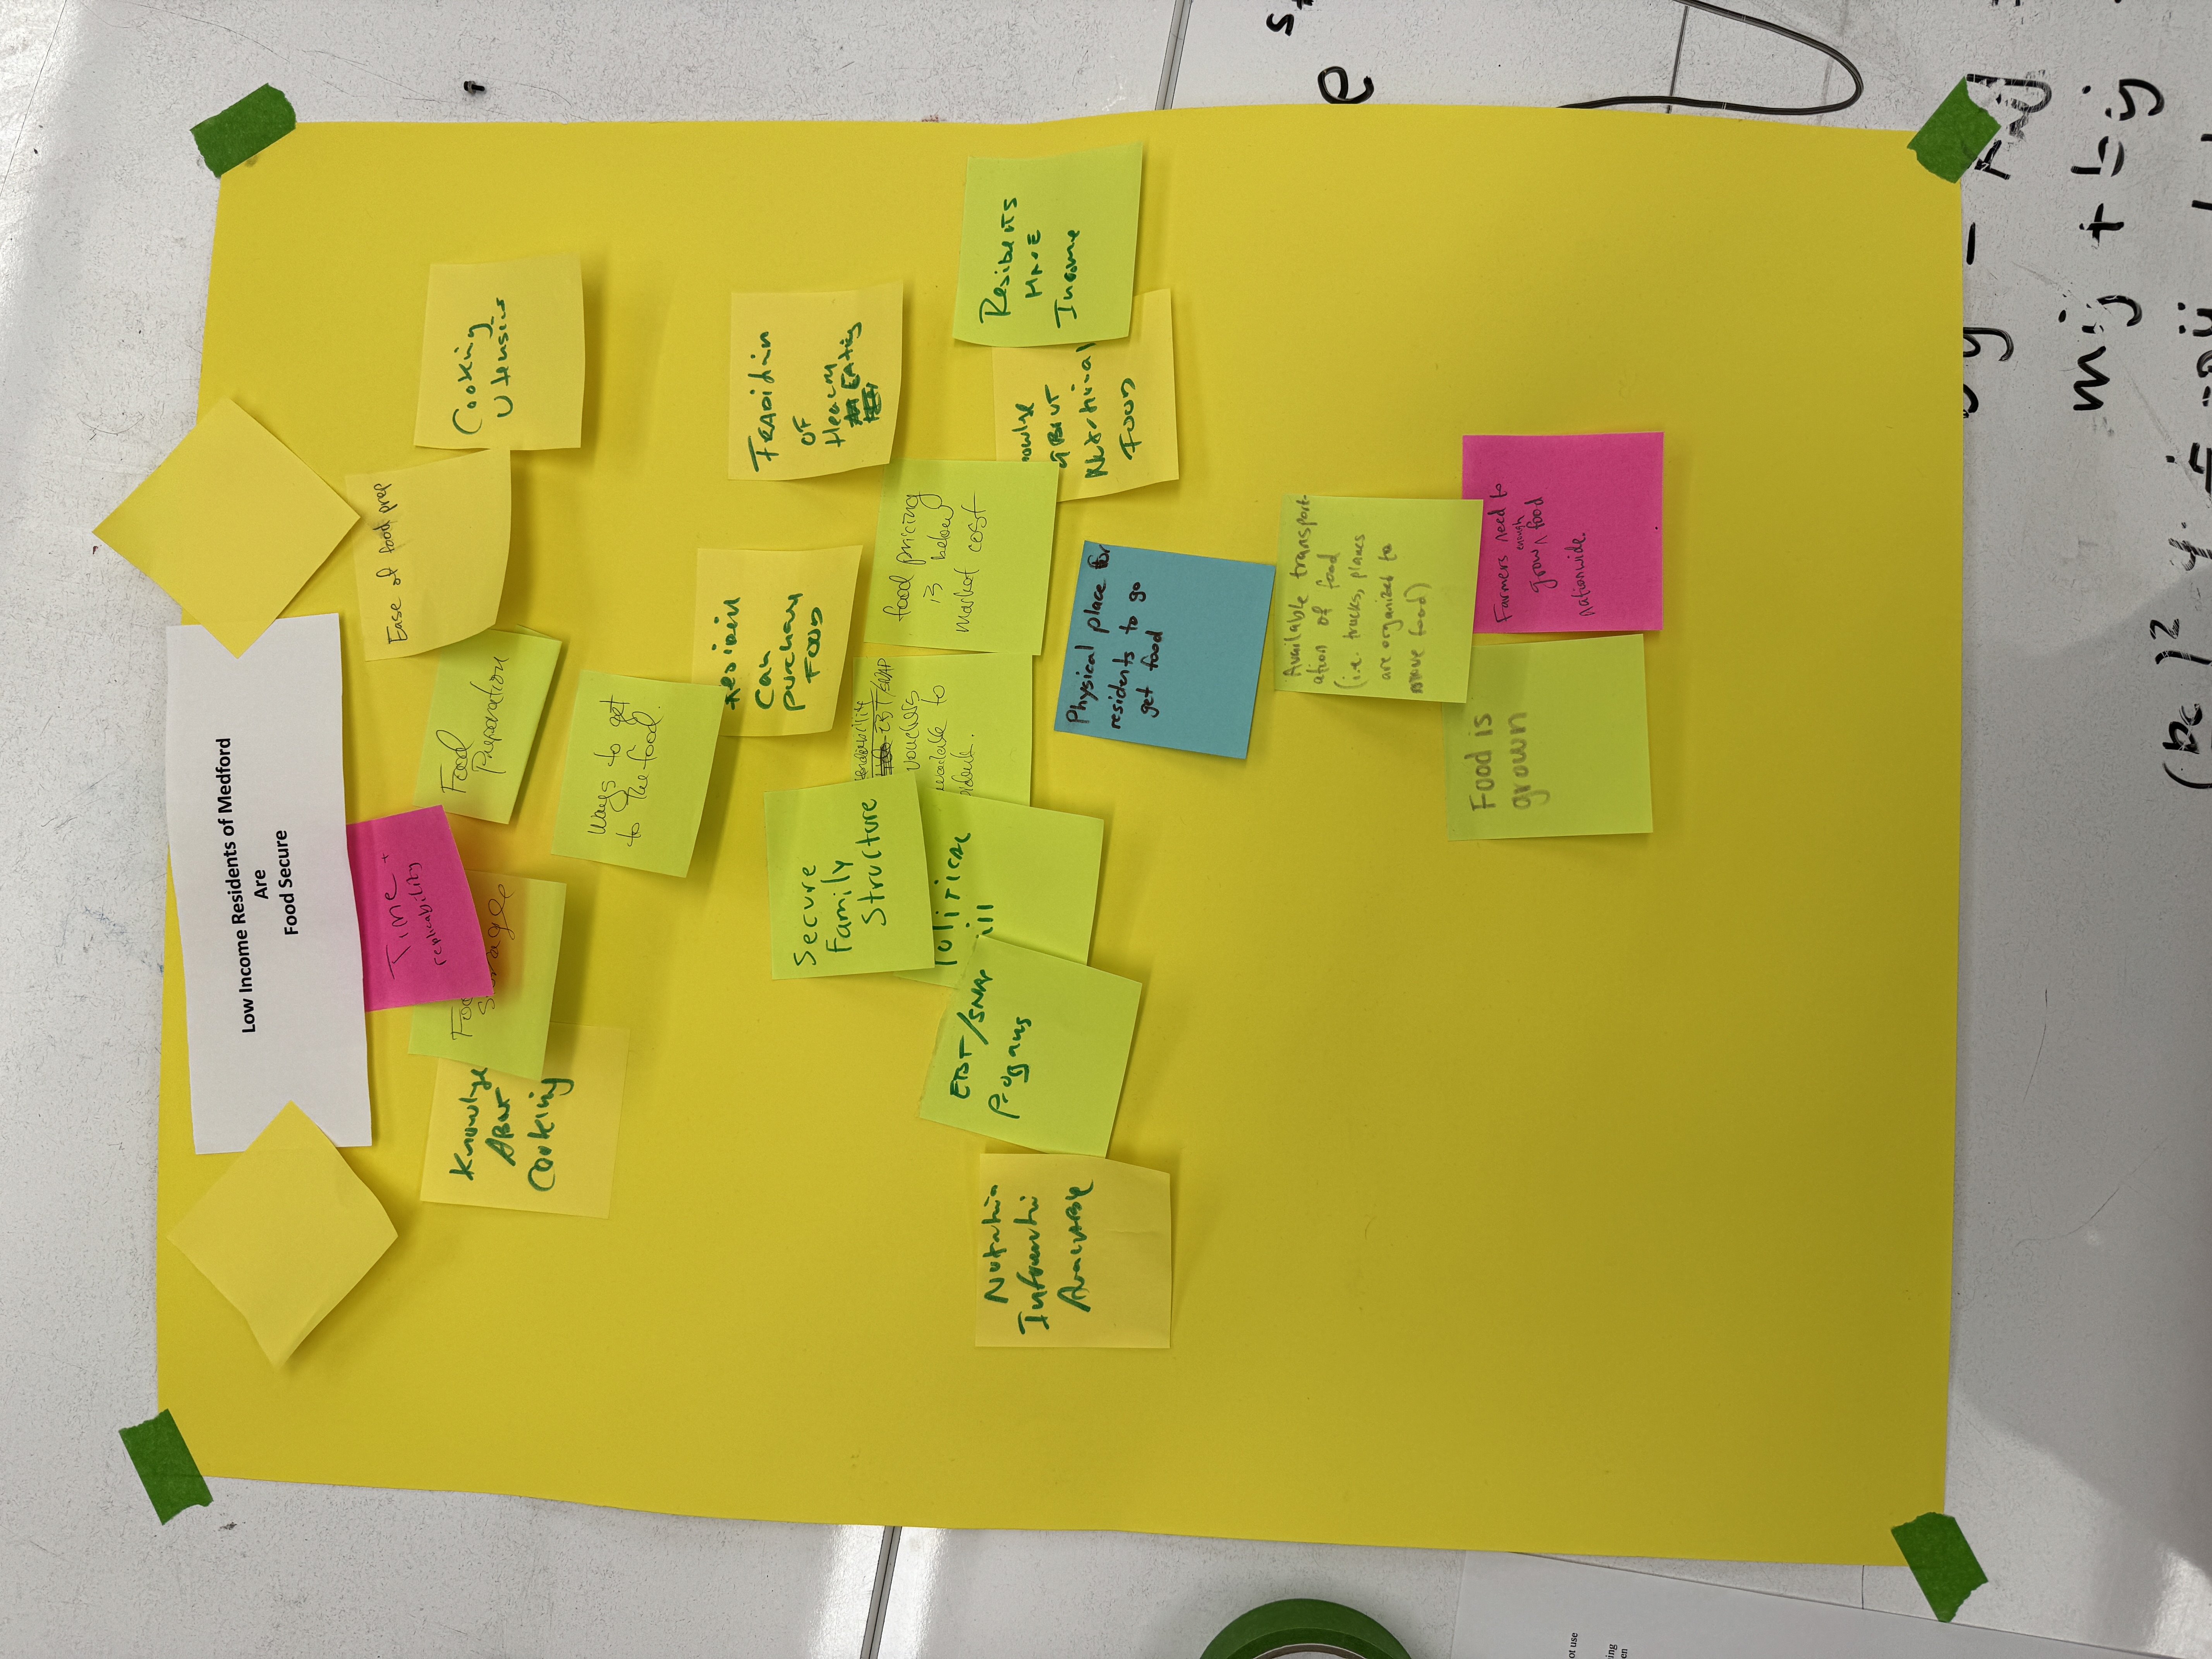 Low Income Residents of Medford
Are
Food Secure
Time +
replicability
Ease of food prep
Knowlge
About
Cooking
Foo
Storage
Food
Preparation
Cooking
Utensils
ways to get
to the food.
can
purchase
FOOD
Tradition
OF
Healthy
Eating
Secure
Family
Structure
EBT/SNAP
vouchers
to
food pricing
is below
market cost
Political
ill
EBT/SNAP
Progams
Nutrition
Information
Available
owlge
About
Nutritional
FOOD
Residents
Have
Income
Physical place for
residents to go
get food
Available transport-
ation of food
(i.e. trucks, planes
are organized to
move food)
Food is
grown
Farmers need to
grow enough food
nationwide.
ot use
ing
en
e
mij + bij